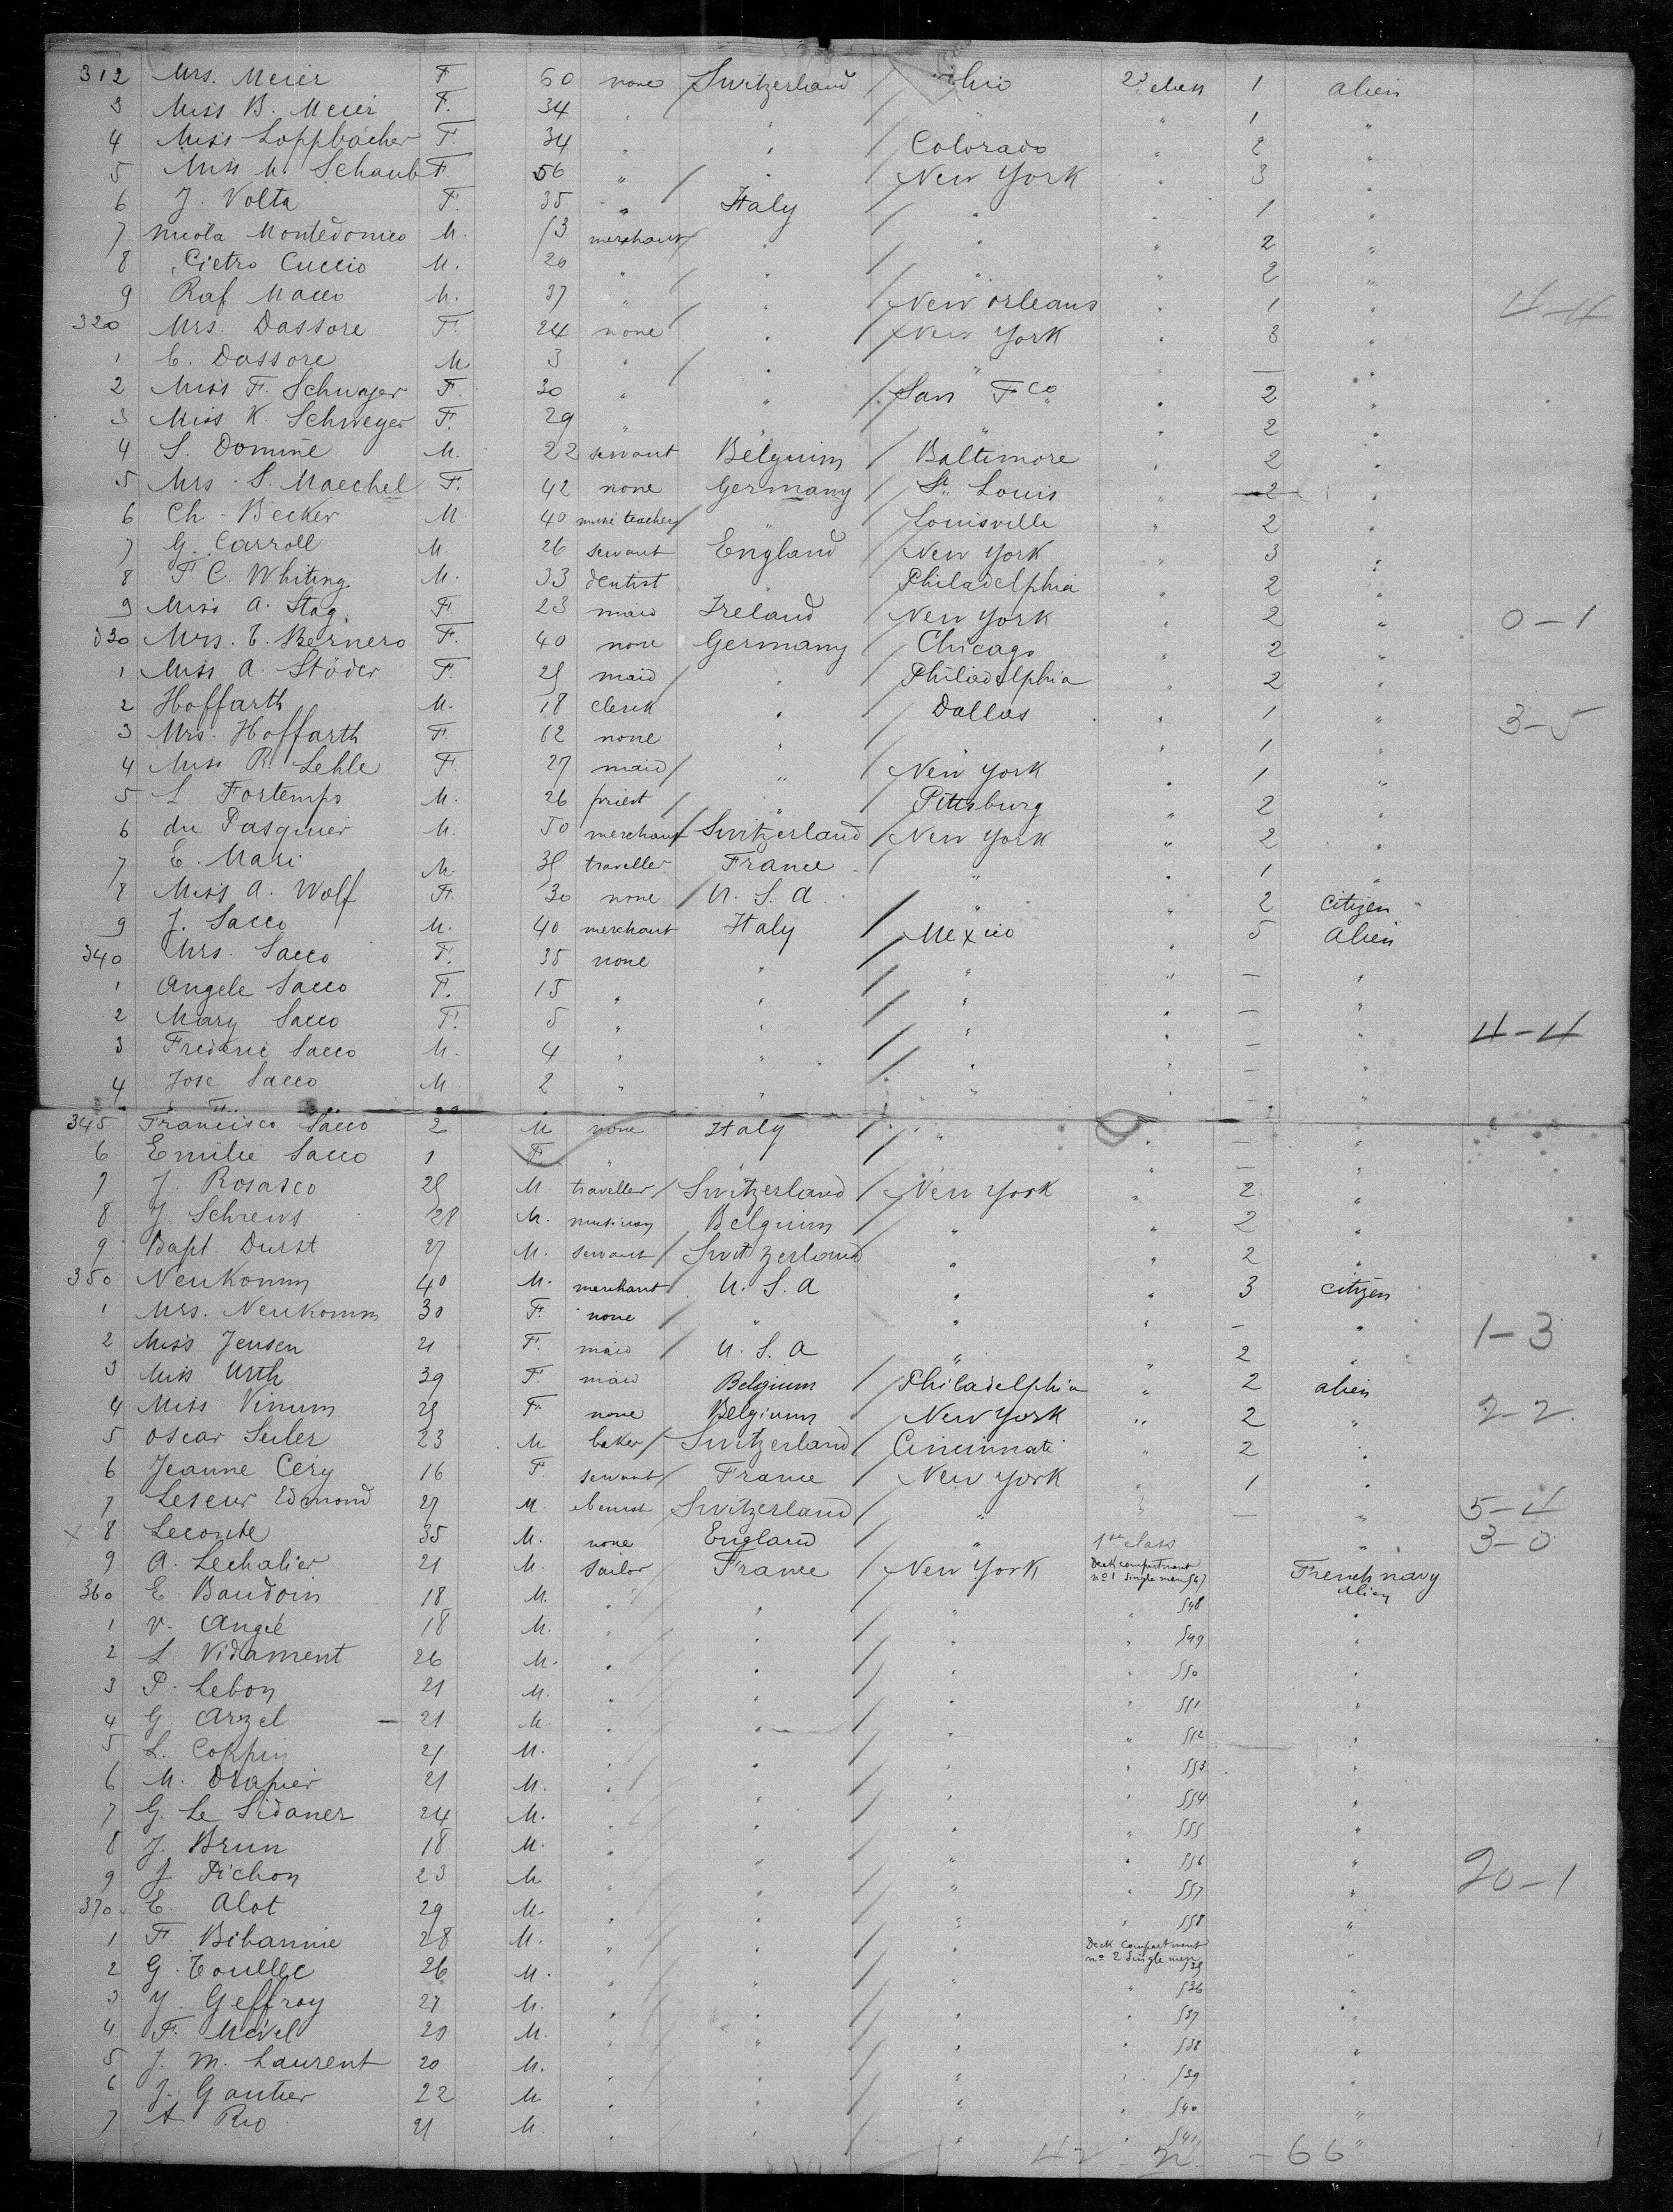 312 Mrs. Meier F 60 none Switzerland Ohio 2d class 1 alien
3 Miss B. Meier F. 34 " " " " 1 "
4 Miss Loppbacher F. 34 " " Colorado " 2 "
5 Miss M. Schaub F. 56 " " New York " 3 "
6 J. Volta F. 35 " Italy " " 1 "
7 Nicola Montedonico M. 13 merchant " " " 2 "
8 Pietro Cuccio M. 26 " " " " 2 "
9 Raf Macco M. 37 " " New Orleans " 1 " 4-4
320 Mrs. Dassore F. 24 none " New York " 3 "
1 C. Dassore M 3 " " " " — "
2 Miss F. Schwager F. 30 " " San Fco " 2 "
3 Miss K. Schweyer F. 29 " " " " 2 "
4 S. Domine M. 22 servant Belguim Baltimore " 2 "
5 Mrs. S. Maechel F. 42 none Germany St. Louis " 2 "
6 Ch. Becker M 40 music teacher " Louisville " 2 "
7 G. Carroll M. 26 servant England New York " 3 "
8 F C. Whiting M. 33 dentist " Philadelphia " 2 "
9 Miss A. Stag. F. 23 maid Ireland New York " 2 " 0-1
330 Mrs. T. Bernero F. 40 none Germany Chicago " 2 "
1 Miss A. Stöder F. 25 maid " Philadelphia " 2 "
2 Hoffarth M. 18 clerk " Dallas " 1 " 3-5
3 Mrs. Hoffarth F. 62 none " " " 1 "
4 Miss R. Lehle F. 27 maid " New York " 1 "
5 L. Fortemps M. 26 priest " Pittsburg " 2 "
6 du Pasquier M. 50 merchant Switzerland New York " 2 "
7 E. Mari M. 35 traveller France " " 1 "
8 Miss A. Wolf F. 30 none U. S. A " " 2 citizen
9 J. Sacco M. 40 merchant Italy Mexico " 5 alien
340 Mrs. Sacco F. 35 none " " " — "
1 Angele Sacco F. 15 " " " " — "
2 Mary Sacco F. 5 " " " " — " 4-4
3 Frederic Sacco M. 4 " " " " — "
4 Jose Sacco M 2 " " " " — "
345 Francisco Sacco 2 M none Italy " " — "
6 Emilie Sacco 1 F " " " " — "
7 J. Rosasco 25 M. traveller Switzerland New York " 2 "
8 J. Schrews 28 M. musician Belguim " " 2 "
9 Bapt. Durst 27 M. servant Switzerland " " 2 "
350 Neukomm 40 M. merchant U. S. A " " 3 citizen
1 Mrs. Neukomm 30 F. none " " " — " 1-3
2 Miss Jensen 21 F. maid U. S. A " " 2 "
3 Miss Urth 39 F. maid Belgium Philadelphia " 2 alien
4 Miss Vinum 25 F. none Belgium New York " 2 " 2-2.
5 Oscar Seiler 23 M baker Switzerland Cincinnati " 2 "
6 Jeanne Céry 16 F. servant France New York " 1 "
7 Leseur Edmond 27 M. ebenist Switzerland " " — " 5-4
x 8 Leconte 35 M. none England " 1st class " 3-0
9 A. Lechalier 21 M. sailor France New York Deck compartment no 1 single men 547 French navy alien
360 E. Baudoin 18 M. " " " " 548 "
1 V. Angé 18 M. " " " " 549 "
2 L. Vidament 26 M. " " " " 550 "
3 P. Lebon 21 M. " " " " 551 "
4 G. Arzel 21 M. " " " " 552 "
5 L. Coppin 21 M. " " " " 553 "
6 M. Drapier 21 M. " " " " 554 "
7 G. Le Sidaner 24 M. " " " " 555 "
8 J. Brun 18 M. " " " " 556 " 20-1
9 J. Pichon 23 M " " " " 557 "
370 E. Alot 29 M. " " " " 558 "
1 F. Bihannie 28 M. " " " Deck compartment no 2 single men 535 "
2 G. Toullec 26 M. " " " " 536 "
3 Y. Geffroy 27 M. " " " " 537 "
4 F. Mével 20 M. " " " " 538 "
5 J. M. Laurent 20 M. " " " " 539 "
6 J. Gautier 22 M " " " " 540 "
7 A Rio 21 M. " " " " 541 "
42 - - 66